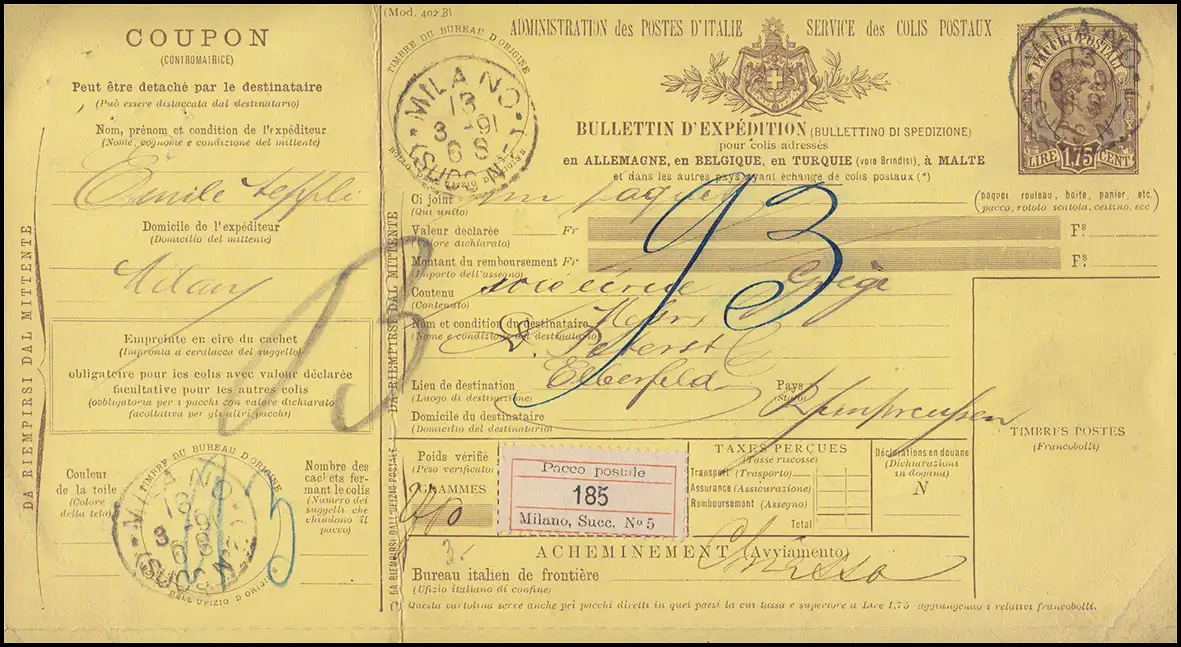 (Mod. 402 B)
COUPON
(CONTROMATRICE)
Peut être detaché par le destinataire
(Può essere distaccata dal destinatario)
Nom, prénom et condition de l'expéditeur
(Nome, cognome e condizione del mittente)
Emile
Domicile de l'expéditeur
(Domicilio del mittente)
Milan
Empreinte en cire du cachet
(Impronta a ceralacca del suggello)
obligatoire pour les colis avec valeur déclarée
facultative pour les autres colis
(obbligatoria per i pacchi con valore dichiarato
facoltativa per gli altri pacchi)
DA RIEMPIRSI DAL MITTENTE
Couleur
de la toile
(Colore
della tela)
TIMBRE DU BUREAU D'ORIGINE
MILANO
(SUCC. N. 5)
DELL'UFIZIO D'ORIGINE
Nombre des
cachets fer-
mant le colis
(Numero dei
suggelli che
chiudono il
pacco)
DA RIEMPIRSI DAL MITTENTE
DA RIEMPIRSI DALL'UFIZIO POSTALE
TIMBRE DU BUREAU D'ORIGINE
MILANO
13
3 -91
6 S
(SUCC. N. 5)
ADMINISTRATION des POSTES D'ITALIE
SERVICE des COLIS POSTAUX
BULLETTIN D'EXPÉDITION (BULLETTINO DI SPEDIZIONE)
pour colis adressés
en ALLEMAGNE, en BELGIQUE, en TURQUIE (voie Brindisi), à MALTE
et dans les autres pays ayant échange de colis postaux (*)
PACCHI POSTALI
LIRE 1,75 CENT
MILANO
Ci joint un paquet
(Qui unito)
(paquet, rouleau, boite, panier, etc.
(pacco, rotolo scatola, cestino, ecc)
Valeur déclarée Fr Fs
(Valore dichiarato)
Montant du remboursement Fr Fs
(Importo dell'assegno)
Contenu Grège
(Contenuto)
Nom et condition du destinataire
(Nome e condizione del destinatario)
Lieu de destination Elberfeld Pays Rheinpreussen
(Luogo di destinazione) (Stato)
Domicile du destinataire
(Domicilio del destinatario)
93
TIMBRES POSTES
(Francobolli)
Poids vérifié
(Peso verificato)
GRAMMES
3.-
Pacco postale
185
Milano, Succ. No 5
TAXES PERÇUES
(Tasse riscosse)
Transport (Trasporto)
Assurance (Assicurazione)
Remboursement (Assegno)
Total
Déclarations en douane
(Dichiarazioni
in dogana)
N
ACHEMINEMENT (Avviamento)
Bureau italien de frontière Chiasso
(Ufizio italiano di confine)
(*) Questa cartolina serve anche pei pacchi diretti in quei paesi la cui tassa è superiore a Lire 1,75 aggiungendo i relativi francobolli.